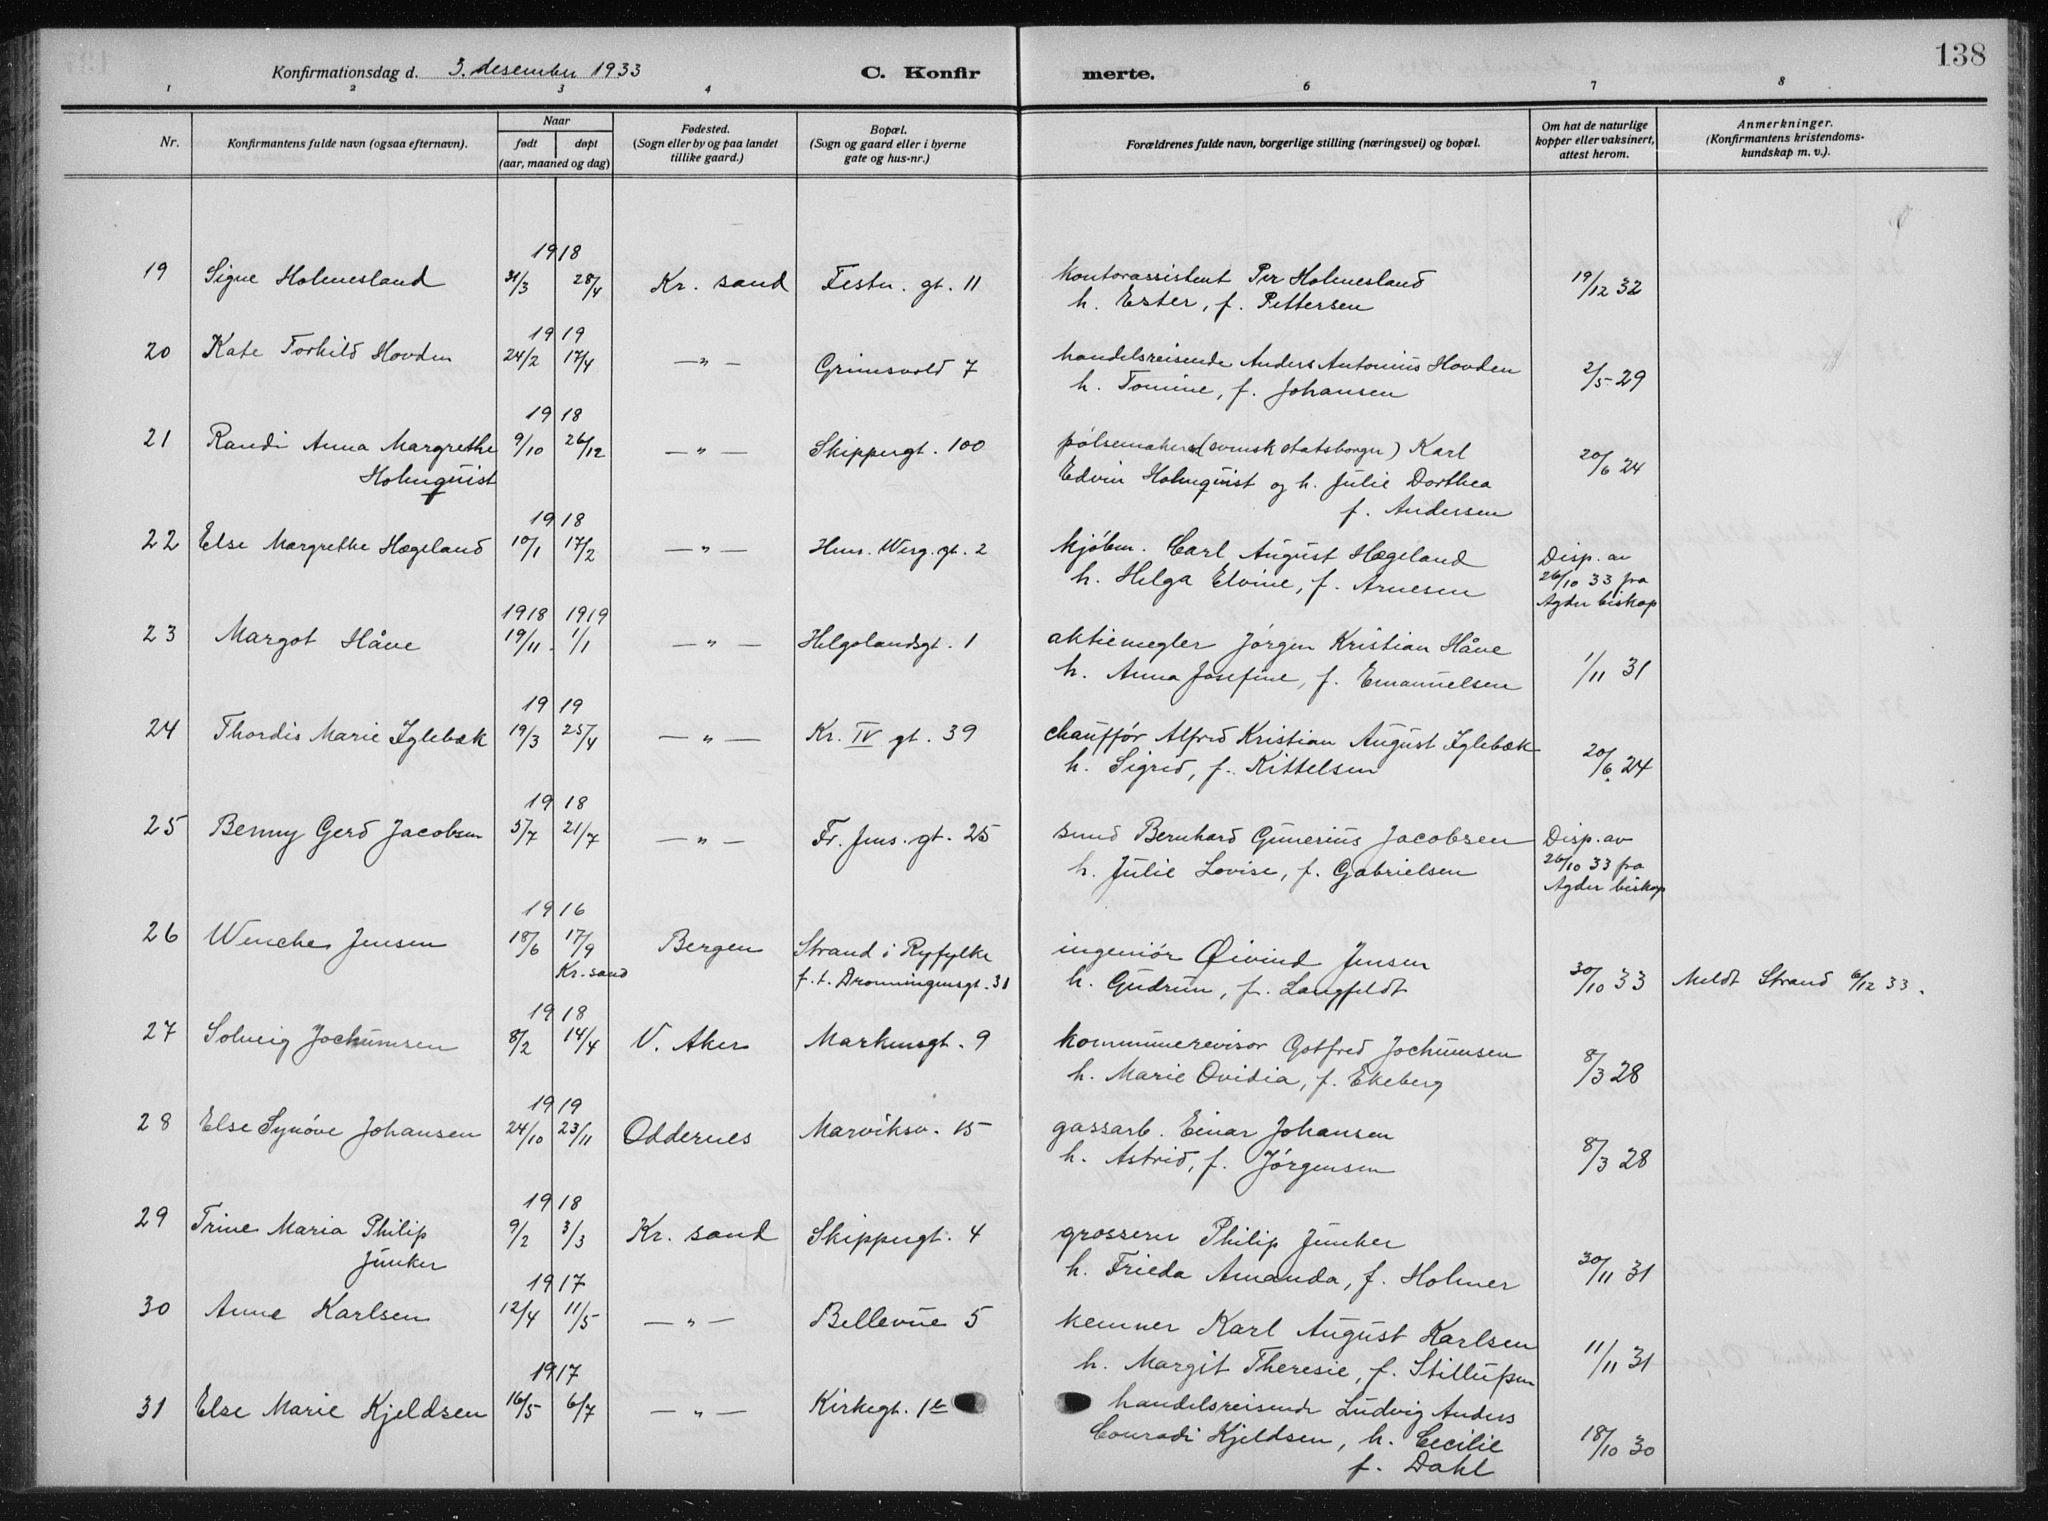 138
Konfirmationsdag d. 3. desember 1933 C. Konfir merte.
1 2 3 4 6 7 8
Nr. Konfirmantens fulde navn (ogsaa efternavn). Naar født døpt (aar, maaned og dag) Fødested. (Sogn eller by og paa landet tillike gaard.) Bopæl. (Sogn og gaard eller i byerne gate og hus-nr.) Forældrenes fulde navn, borgerlige stilling (næringsvei) og bopæl. Om hat de naturlige kopper eller vaksinert, attest herom. Anmerkninger. (Konfirmantens kristendoms-kundskap m. v.).
1918
19 Signe Holmesland 31/3 28/4 Kr. sand Festn. gt. 11 kontorassistent Per Holmesland 19/12 32
h. Ester, f. Pettersen
1919
20 Kate Torhild Hovden 24/2 17/4 — " — Grimsvold 7 handelsreisende Anders Antonius Hovden 2/5 29
h. Tomine, f. Johansen
1918
21 Randi Anna Margrethe 9/10 26/12 — " — Skippergt. 100 pølsemaker (svensk statsborger) Karl 20/6 24
Holmquist Edvin Holmquist og h. Julie Dorthea
f. Andersen
1918
22 Else Margrethe Hægeland 10/1 17/2 — " — Hens. Werg. gt. 2 kjøbm. Carl August Hægeland Disp. av
h. Helga Elvine, f. Arnesen 26/10 33 fra
Agder biskop
1918 1919
23 Margot Håve 19/11 1/1 — " — Helgolandsgt. 1 aktiemegler Jørgen Kristian Håve 1/11 31
h. Anna Josefine, f. Emanuelsen
1919
24 Thordis Marie Iglebæk 19/3 25/4 — " — Kr. IV gt. 39 chauffør Alfred Kristian August Iglebæk 20/6 24
h. Sigrid, f. Kittelsen
1918
25 Benny Gerd Jacobsen 5/7 21/7 — " — Fr. Jens. gt. 25 smed Bernhard Gunerius Jacobsen Disp. av
h. Julie Lovise, f. Gabrielsen 26/10 33 fra
Agder biskop
1916
26 Wenche Jensen 18/6 17/9 Bergen Strand i Ryfylke ingeniør Øivind Jensen
Kr. sand f. t. Dronningensgt. 31 h. Gudrun, f. Langfeldt 30/10 33 Meldt Strand 6/12 33.
1918
27 Solveig Jochumsen 8/2 14/4 V. Aker Markensgt. 9 kommunerevisor Gotfred Jochumsen 8/3 28
h. Marie Ovidia, f. Ekeberg
1919
28 Else Synøve Johansen 24/10 23/11 Oddernes Marviksv. 15 gassarb. Einar Johansen 8/3 28
h. Astrid, f. Jørgensen
1918
29 Trine Maria Philip 9/2 3/3 Kr. sand Skippergt. 4 grosserer Philip Junker
Junker h. Frieda Amanda, f. Holmer 30/11 31
1917
30 Anne Karlsen 12/4 11/5 — " — Bellevue 5 kemner Karl August Karlsen 11/11 31
h. Margit Theresie, f. Stillufsen
1917
31 Else Marie Kjeldsen 16/5 6/7 — " — Kirkegt. 1 handelsreisende Ludvig Anders
Conradi Kjeldsen, h. Cecilie 18/10 30
f. Dahl